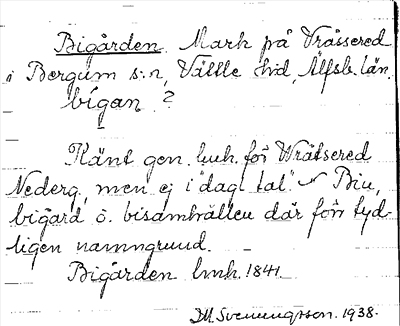 Bigården. Mark på Vråssered
i Bergum s:n, Vättle hd, Älfsb. län.
bígan ?
Känt gen. lmh. för Wråtsered
Nederg. men ej i "dag. tal." Biu,
bigård o. bisamhällen där förr tyd-
ligen namngrund.
Bigården lmh. 1841.
M. Svenungsson. 1938.